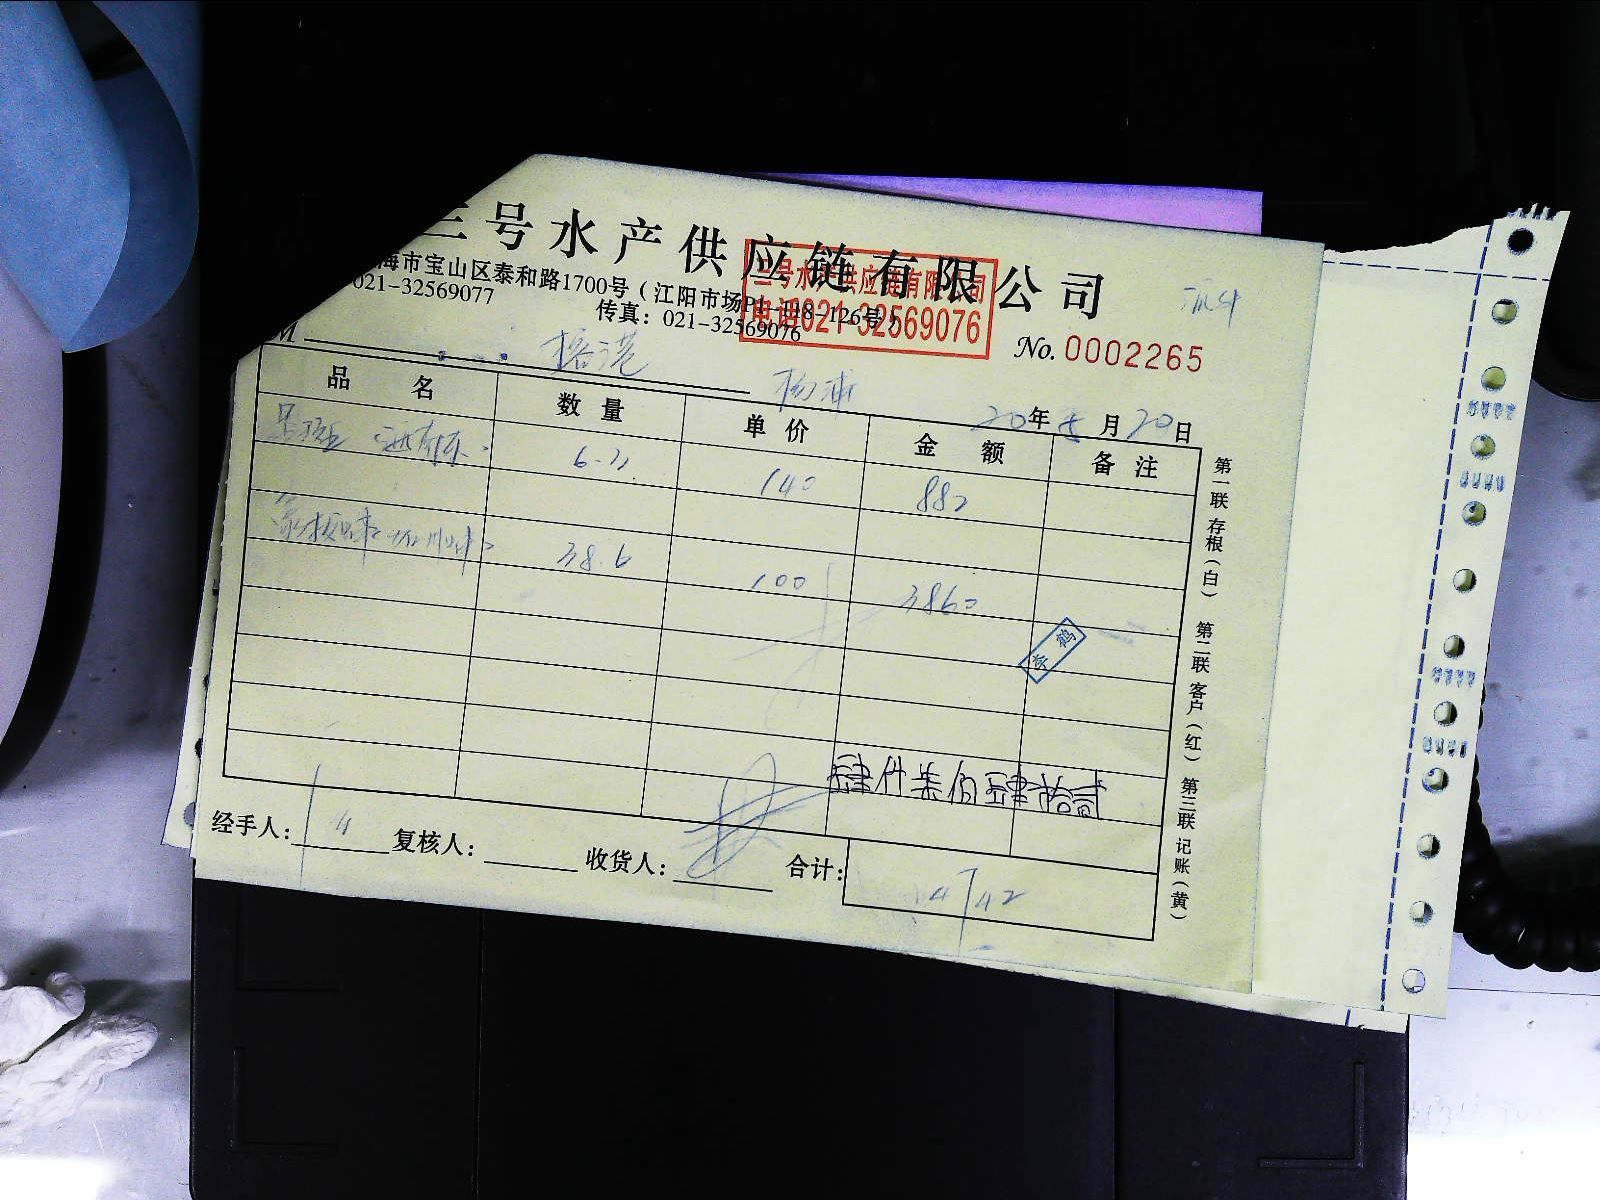 三号水产供应链有限公司
海市宝山区泰和路1700号（江阳市场P1-118-126号）
021-32569077 传真：021-32569076
三号水产供应链有限公司
电话021-32569076
No. 0002265
M 榕港 杨浦
20年5月20日
品名 数量 单价 金额 备注
140 882
38.6 100 3860
肆仟柒佰肆拾贰
经手人： 复核人： 收货人： 合计： 4742
第一联 存根（白） 第二联 客户（红） 第三联 记账（黄）